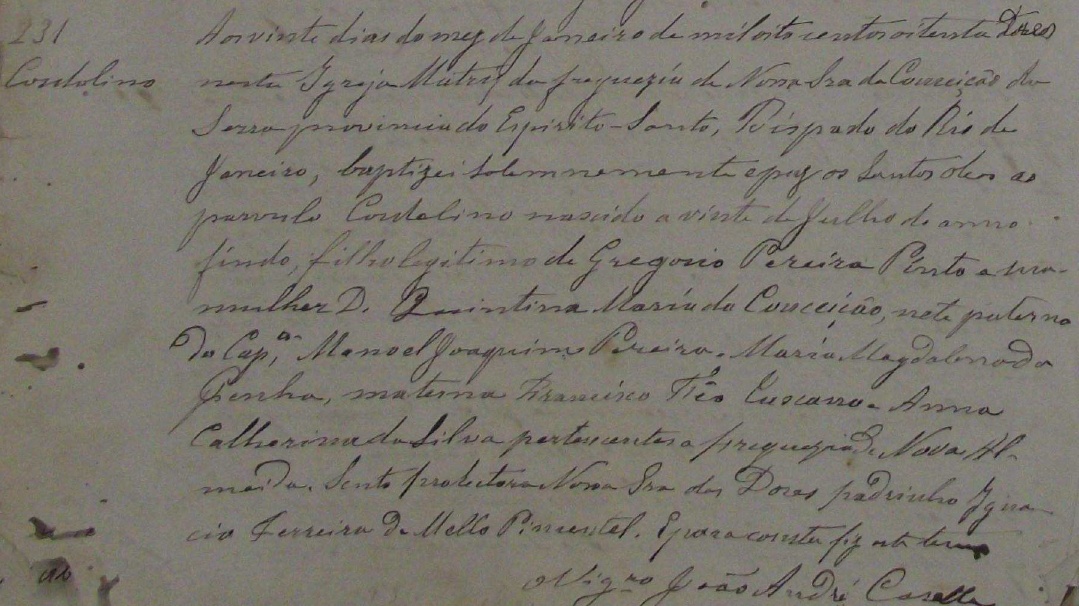 231
Cordolino
Aos vinte dias do mez de Janeiro de mil oito centos oitenta Dores
nesta Igreja Matriz da freguezia de Nossa Sra da Conceição da
Serra provincia do Espirito-Santo, Bispado do Rio de
Janeiro, baptizei solemnemente e puz os Santos oleos ao
parvulo Cordolino nascido a vinte de Julho do anno
findo, filho legitimo de Gregorio Pereira Pinto e sua
mulher D. Quintina Maria da Conceição, neto paterno
do Cap.am Manoel Joaquim Pereira e Maria Magdalena da
Penha, materna Francisco e Anna
Catherina da Silva pertencentes a freguezia de Nova Al-
meida. Sendo protectora Nossa Sra das Dores padrinho Igna-
cio Ferreira de Mello Pimentel. E para constar fiz este termo
O Vigro João André Casella